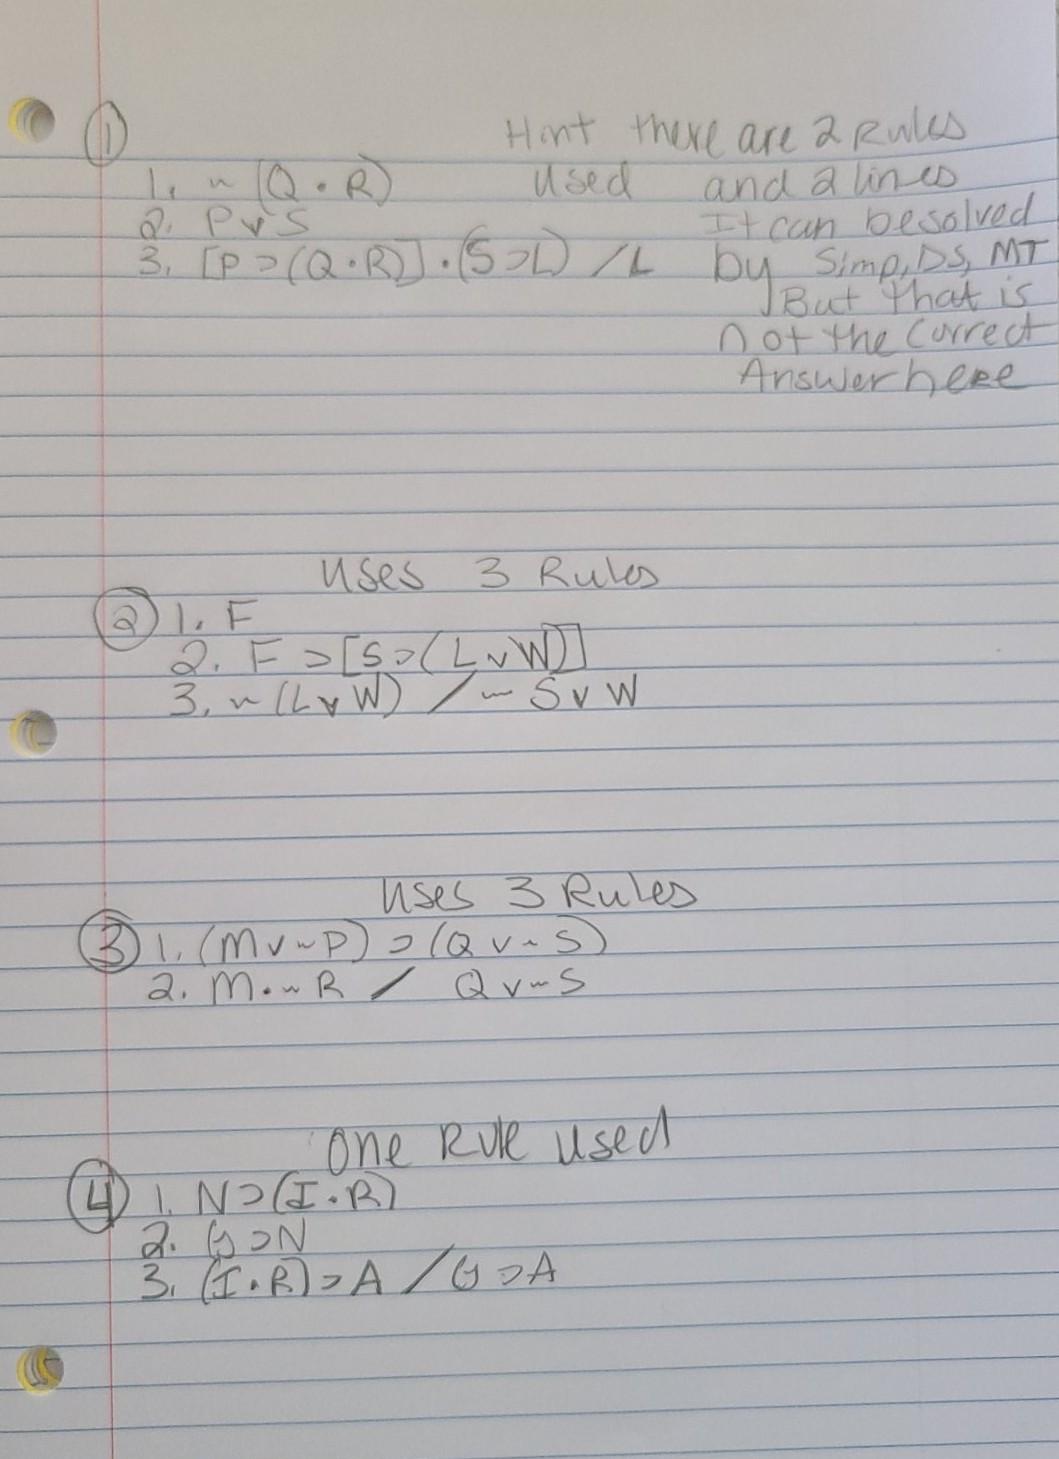 ① Hint there are 2 Rules
1. ~ (Q • R) used and 2 lines
2. P v S It can be solved
3. [P ⊃ (Q • R)] • (S ⊃ L) / L by Simp, DS, MT
But that is
not the correct
Answer here
uses 3 Rules
② 1. F
2. F ⊃ [S ⊃ (L v W)]
3. ~ (L v W) / ~ S v W
uses 3 Rules
③ 1. (M v ~ P) ⊃ (Q v ~ S)
2. M • ~ R / Q v ~ S
One Rule used
④ 1. N ⊃ (I • R)
2. G ⊃ N
3. (I • R) ⊃ A / G ⊃ A